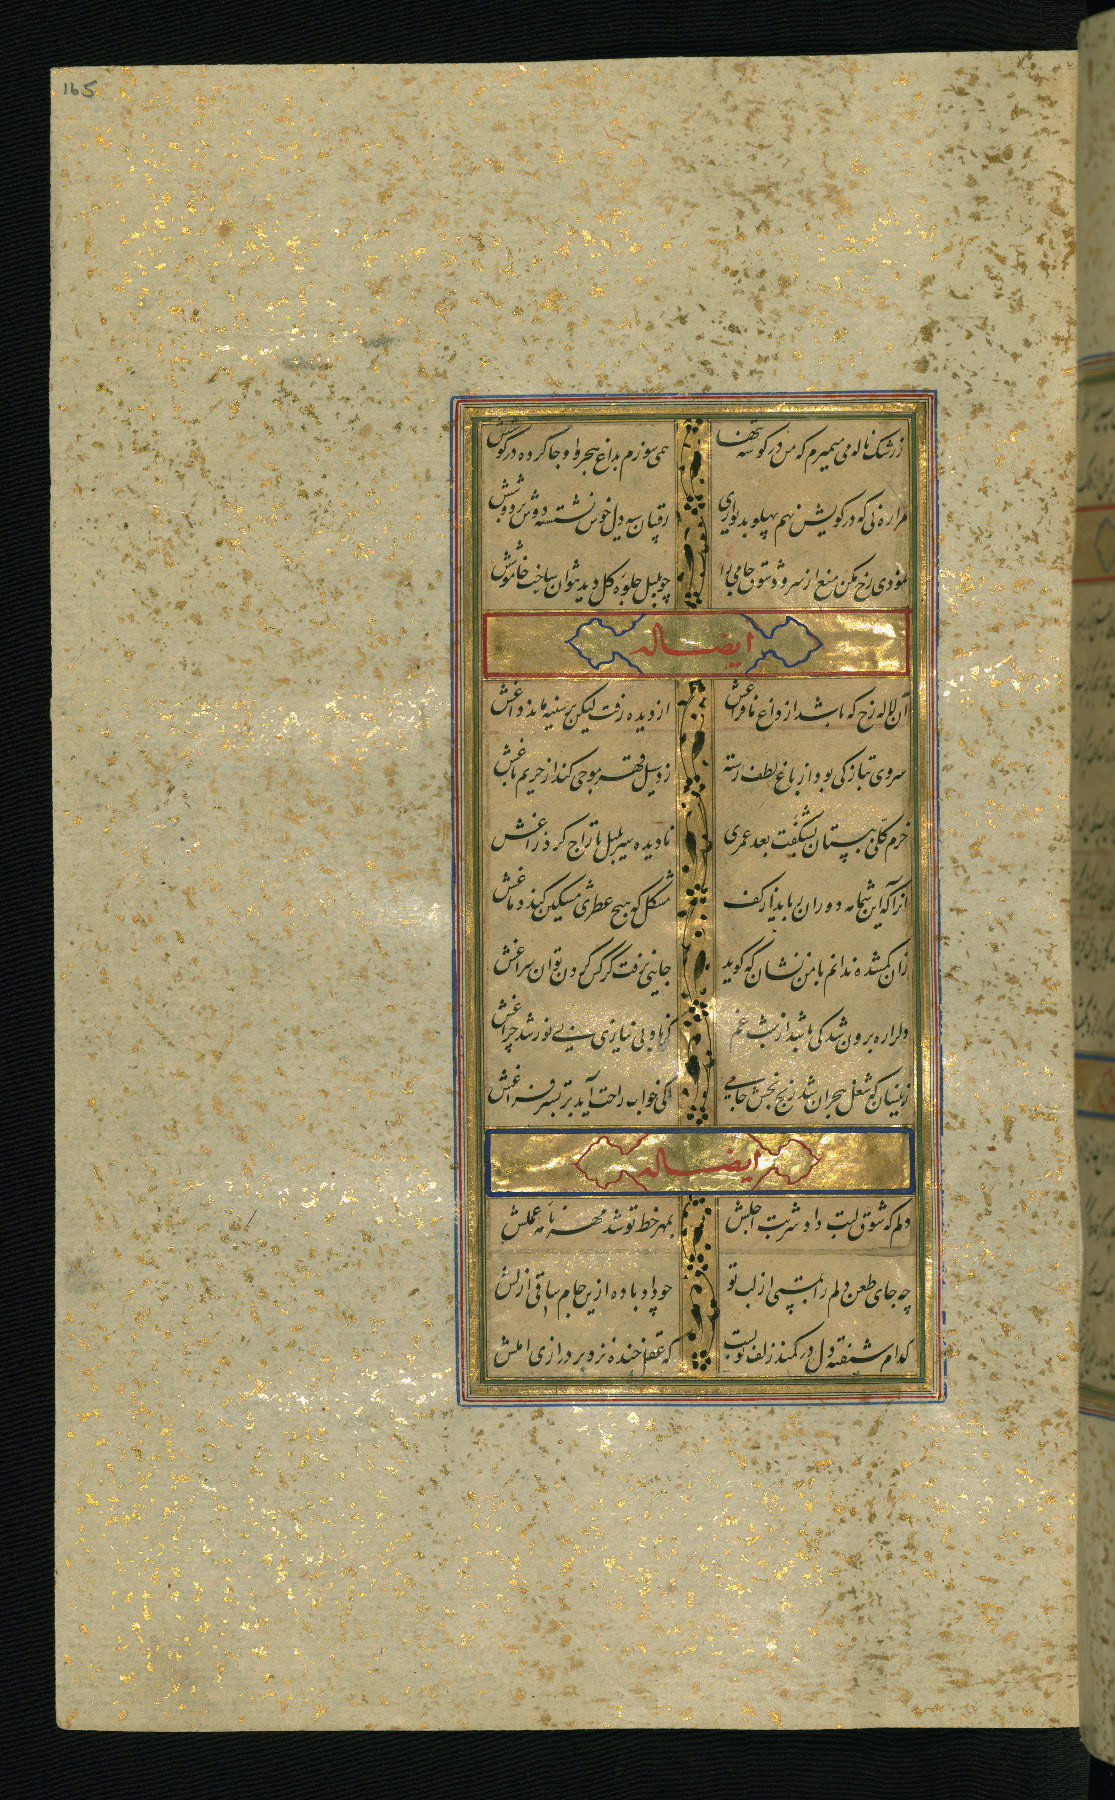 165
ز رشک ناله می میرم که من در گوشه تنها
همی سوزم بداغ هجر و او جا کرده در گوشش
مرا ره نی که در کویش نهم پهلو بدیواری
رقیبان سیه دل خوش نشسته دوش بر دوشش
رخ مکن منع از سرود شوق جامی را
چو بلبل جلوه گل دید نتوان ساخت خاموشش
ایضا له
آن لاله رخ که باشد از داغ ما فراغش
از دیده رفت لیکن بر سینه ماند داغش
سروی بناز کی بود از باغ لطف رسته
زد سیل قهر موجی کند از حریم باغش
خرم گلی ببستان بشگفت بعد عمری
نادیده سیر بلبل تاراج کرد زاغش
انرا که این شمامه دوران رباید از کف
مشکل که هیچ عطری مشکین کند دماغش
زان گمشده ندانم با من نشان که گوید
جایی نرفت کز کس کردن توان سراغش
دلرا ره برون شد کی باشد از شب غم
زینسان که شغل هجران شد رنج بخش جامی
کی خواب راحت آید بر بستر فراغش
ایضا له
دلم که شوق لبت داد شربت اجلش
بمهر خط تو شد مهر نامه عملش
چه جای طعن دلم را بمستی از لب تو
چو داد باده ازین جام ساقی ازلش
کدام شیفته دل در کمند زلف تو بست
که عقل خنده نزد بر درازی املش